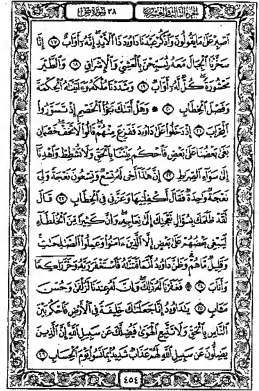 الجزء الثالث والعشرون ٣٨ سورة ص
ٱصْبِرْ عَلَىٰ مَا يَقُولُونَ وَٱذْكُرْ عَبْدَنَا دَاوُۥدَ ذَا ٱلْأَيْدِ إِنَّهُۥٓ أَوَّابٌ ١٧ إِنَّا
سَخَّرْنَا ٱلْجِبَالَ مَعَهُۥ يُسَبِّحْنَ بِٱلْعَشِىِّ وَٱلْإِشْرَاقِ ١٨ وَٱلطَّيْرَ
مَحْشُورَةً كُلٌّ لَّهُۥٓ أَوَّابٌ ١٩ وَشَدَدْنَا مُلْكَهُۥ وَءَاتَيْنَٰهُ ٱلْحِكْمَةَ
وَفَصْلَ ٱلْخِطَابِ ٢٠ وَهَلْ أَتَىٰكَ نَبَؤُا۟ ٱلْخَصْمِ إِذْ تَسَوَّرُوا۟
ٱلْمِحْرَابَ ٢١ إِذْ دَخَلُوا۟ عَلَىٰ دَاوُۥدَ فَفَزِعَ مِنْهُمْ قَالُوا۟ لَا تَخَفْ خَصْمَانِ
بَغَىٰ بَعْضُنَا عَلَىٰ بَعْضٍ فَٱحْكُم بَيْنَنَا بِٱلْحَقِّ وَلَا تُشْطِطْ وَٱهْدِنَآ
إِلَىٰ سَوَآءِ ٱلصِّرَٰطِ ٢٢ إِنَّ هَٰذَآ أَخِى لَهُۥ تِسْعٌ وَتِسْعُونَ نَعْجَةً وَلِىَ
نَعْجَةٌ وَٰحِدَةٌ فَقَالَ أَكْفِلْنِيهَا وَعَزَّنِى فِى ٱلْخِطَابِ ٢٣ قَالَ
لَقَدْ ظَلَمَكَ بِسُؤَالِ نَعْجَتِكَ إِلَىٰ نِعَاجِهِۦ وَإِنَّ كَثِيرًا مِّنَ ٱلْخُلَطَآءِ
لَيَبْغِى بَعْضُهُمْ عَلَىٰ بَعْضٍ إِلَّا ٱلَّذِينَ ءَامَنُوا۟ وَعَمِلُوا۟ ٱلصَّٰلِحَٰتِ
وَقَلِيلٌ مَّا هُمْ وَظَنَّ دَاوُۥدُ أَنَّمَا فَتَنَّٰهُ فَٱسْتَغْفَرَ رَبَّهُۥ وَخَرَّ رَاكِعًا
وَأَنَابَ ٢٤ فَغَفَرْنَا لَهُۥ ذَٰلِكَ وَإِنَّ لَهُۥ عِندَنَا لَزُلْفَىٰ وَحُسْنَ
مَـَٔابٍ ٢٥ يَٰدَاوُۥدُ إِنَّا جَعَلْنَٰكَ خَلِيفَةً فِى ٱلْأَرْضِ فَٱحْكُم بَيْنَ
ٱلنَّاسِ بِٱلْحَقِّ وَلَا تَتَّبِعِ ٱلْهَوَىٰ فَيُضِلَّكَ عَن سَبِيلِ ٱللَّهِ إِنَّ ٱلَّذِينَ
يَضِلُّونَ عَن سَبِيلِ ٱللَّهِ لَهُمْ عَذَابٌ شَدِيدٌۢ بِمَا نَسُوا۟ يَوْمَ ٱلْحِسَابِ ٢٦
٤٥٤